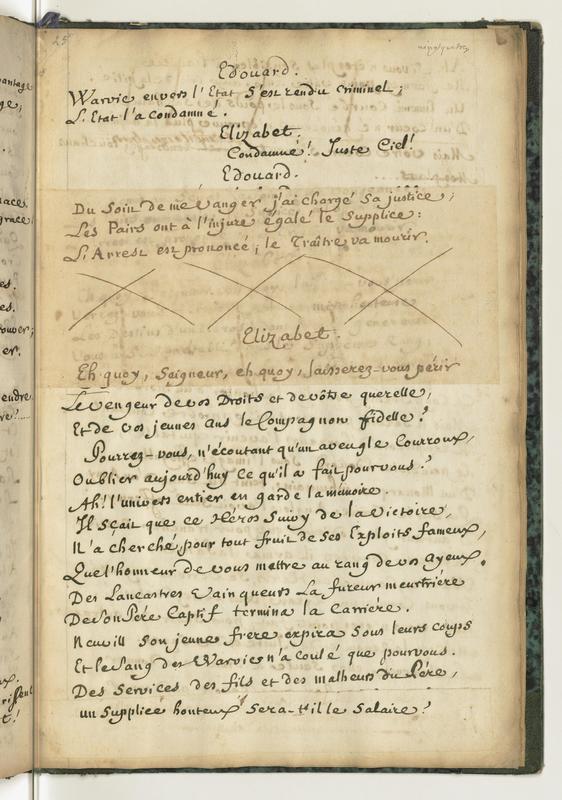 25
Edouard.
Warvic envers l'Etat s'est rendu criminel ;
L'Etat l'a condamné.
Elizabet.
Condamné ! Juste Ciel !
Edouard.
Du Soin de me vanger j'ai chargé sa justice ;
Les Pairs ont à l'injure égalé le Supplice :
L'Arrest est prononcé ; le Traître va mourir.
Elizabet.
Eh quoy, Seigneur, eh quoy, laisserez-vous périr
Le vengeur de vos Droits et de vôtre querelle,
Et de vos jeunes ans le Compagnon fidelle ?
Pourrez-vous, n'écoutant qu'un aveugle Courroux,
Oublier aujourd'huy ce qu'il a fait pour vous ?
Ah ! l'univers entier en garde la mémoire.
Il sçait que ce Héros Suivy de la victoire,
N'a cherché, pour tout fruit de ses Exploits fameux,
Que l'honneur de vous mettre au rang de vos ayeux.
Des Lancastres vainqueurs La fureur meurtriére
De Son Pére Captif termina la Carriére.
Neuvill Son jeune frere expira Sous leurs coups
Et le Sang des Warvics n'a coulé que pour vous.
Des Services des fils et des malheurs du Pére,
un Supplice honteux Sera-t-il le Salaire ?